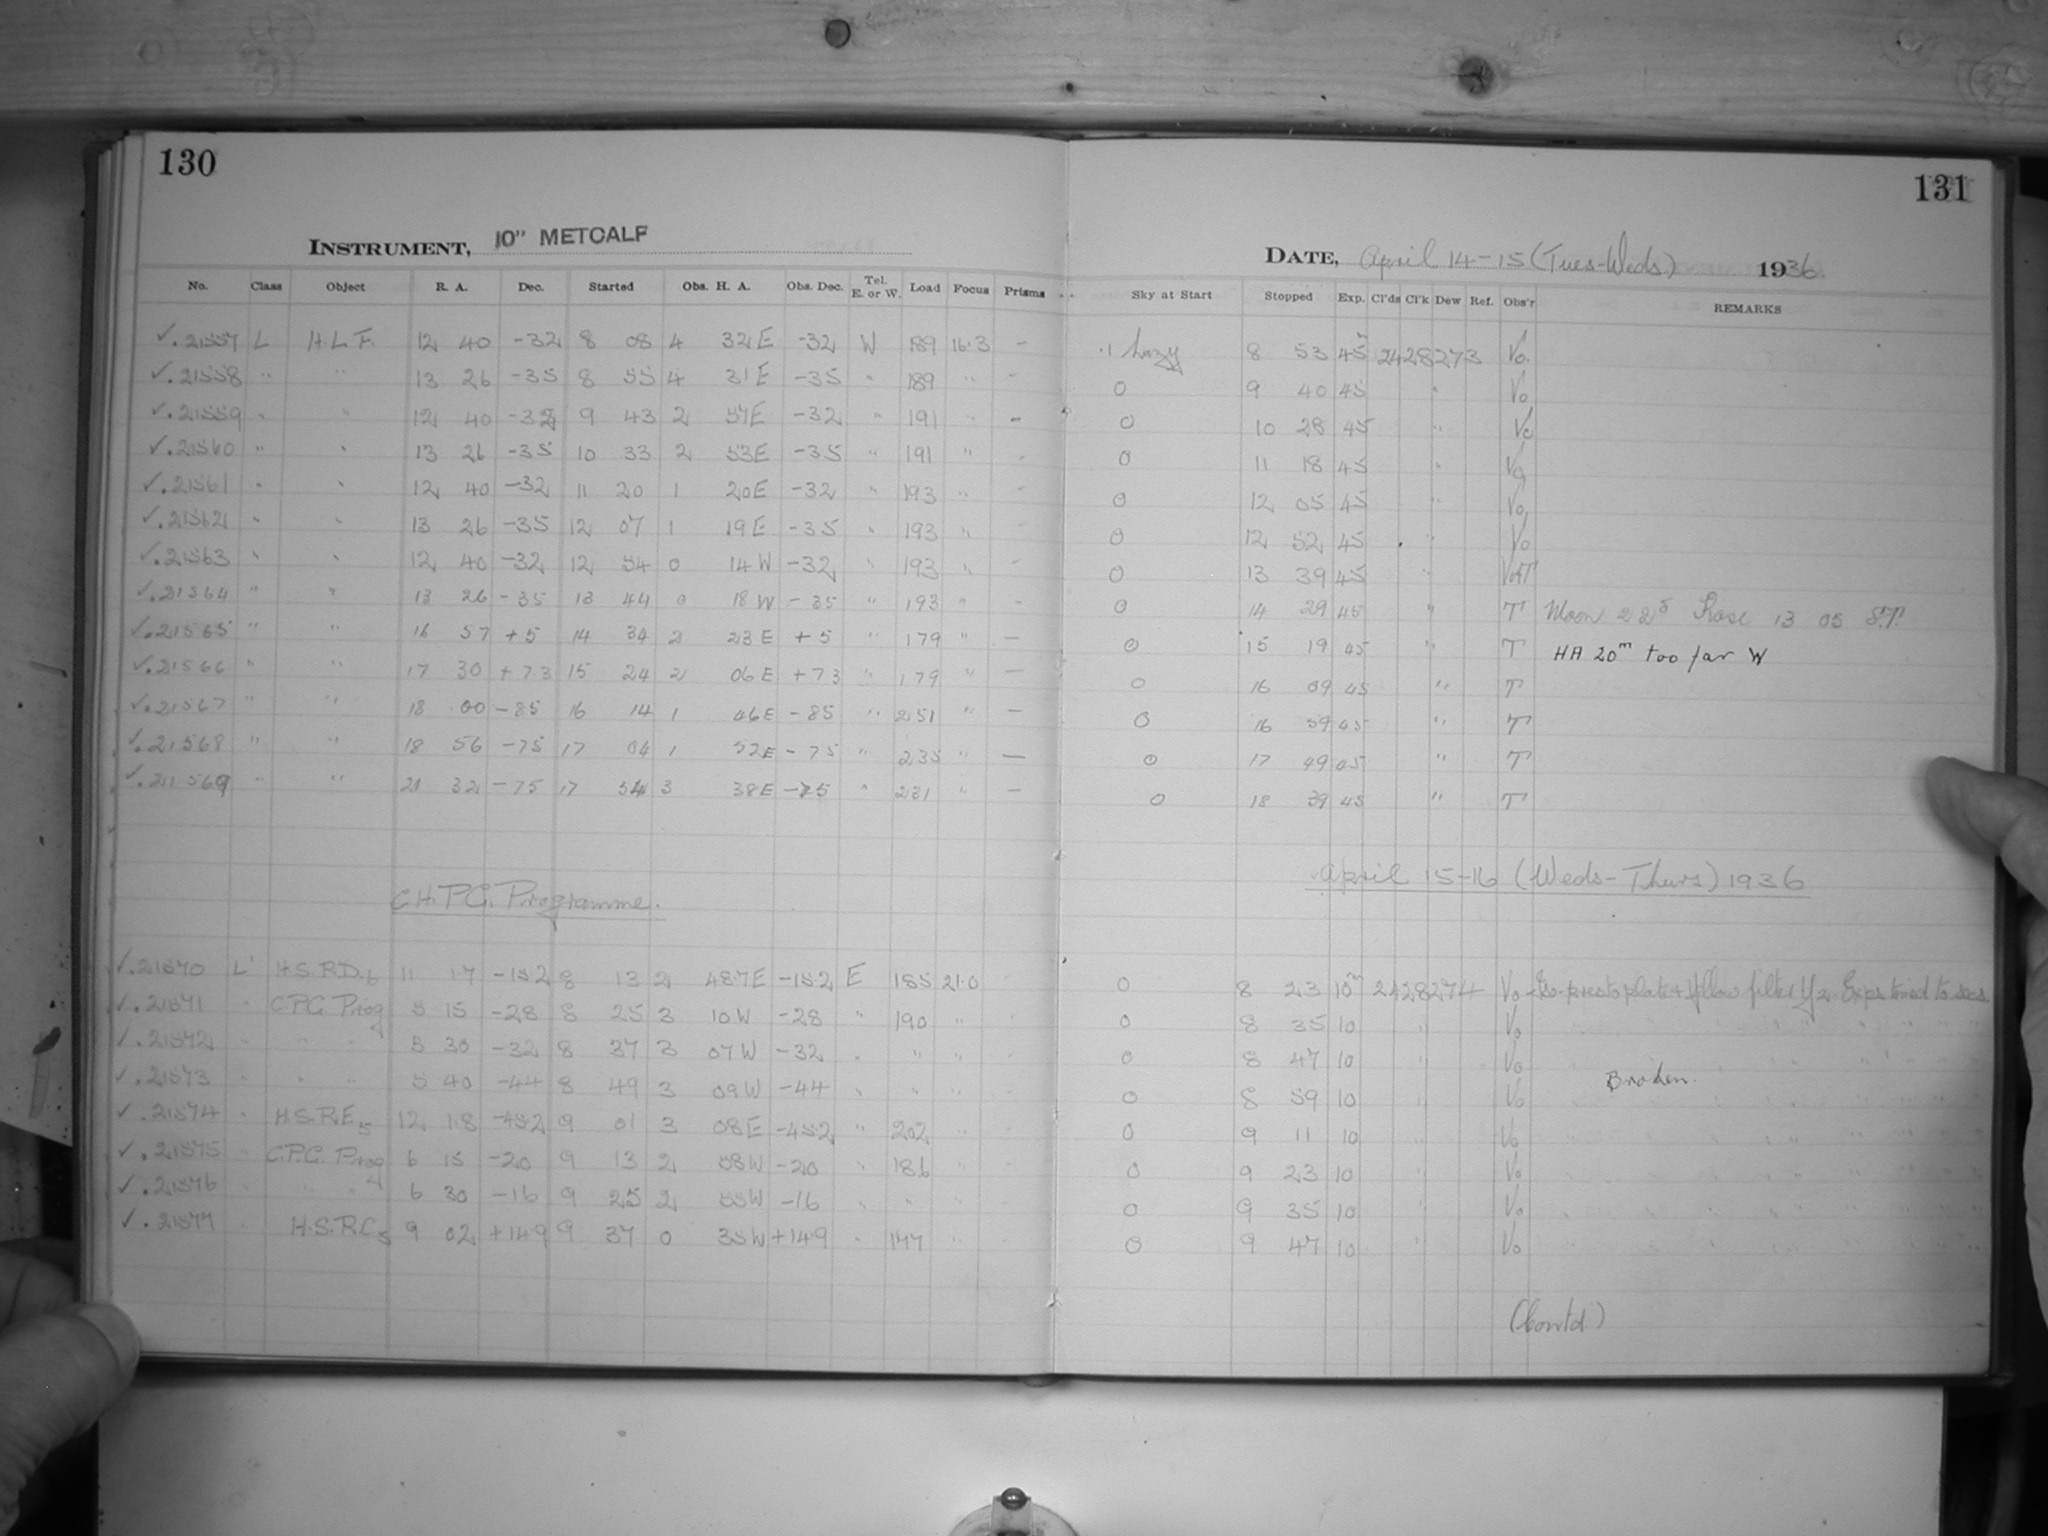 130
131
INSTRUMENT, 10" METCALF
DATE, April 14-15 (Tues-Weds) 1936
No. Class Object R. A. Dec. Started Obs. H. A. Obs. Dec. Tel. E. or W. Load Focus Prisms Sky at Start Stopped Exp. Cl'ds Cl'k Dew Ref. Obs'r REMARKS
✓.21557 L H.L.F. 12 40 -32 8 08 4 32E -32 W 189 16.3 - .1 hazy 8 53 45 2428273 Vo.
✓.21558 " " 13 26 -35 8 55 4 31E -35 " 189 " - 0 9 40 45 " Vo
✓.21559 " " 12 40 -32 9 43 2 57E -32 " 191 " - 0 10 28 45 " Vo
✓.21560 " " 13 26 -35 10 33 2 53E -35 " 191 " - 0 11 18 45 " Vo
✓.21561 " " 12 40 -32 11 20 1 20E -32 " 193 " - 0 12 05 45 " Vo
✓.21562 " " 13 26 -35 12 07 1 19E -35 " 193 " - 0 12 52 45 " Vo
✓.21563 " " 12 40 -32 12 54 0 14W -32 " 193 " - 0 13 39 45 " Vo+T
✓.21564 " " 13 26 -35 13 44 0 18W -35 " 193 " - 0 14 29 45 " T Moon 22 Rose 13 05 S.T.
✓.21565 " " 16 57 +5 14 34 2 23E +5 " 179 " - 0 15 19 45 " T HA 20m too far W
✓.21566 " " 17 30 +7.3 15 24 2 06E +7.3 " 179 " - 0 16 09 45 " T
✓.21567 " " 18 00 -85 16 14 1 46E -85 " 251 " - 0 16 59 45 " T
✓.21568 " " 18 56 -75 17 04 1 52E -75 " 235 " - 0 17 49 45 " T
✓.21569 " " 21 32 -75 17 54 3 38E -75 " 231 " - 0 18 39 45 " T
April 15-16 (Weds-Thurs) 1936
C.H.P.C. Programme.
✓.21570 L H.S.P.D.6 11 17 -15.2 8 13 2 48.7E -15.2 E 185 21.0 0 8 23 10m 2428274 Vo plate + yellow filter Exps timed to secs.
✓.21571 " C.P.C. Prog 5 15 -28 8 25 3 10W -28 " 190 " 0 8 35 10 " Vo
✓.21572 " " " 5 30 -32 8 37 3 07W -32 " " " 0 8 47 10 " Vo
✓.21573 " " " 5 40 -44 8 49 3 09W -44 " " " 0 8 59 10 " Vo Broken.
✓.21574 " H.S.P.E5 12 1.8 -45.2 9 01 3 08E -45.2 " 202 " 0 9 11 10 " Vo
✓.21575 " C.P.C. Prog 6 15 -20 9 13 2 58W -20 " 186 " 0 9 23 10 " Vo
✓.21576 " " " 6 30 -16 9 25 2 55W -16 " " " 0 9 35 10 " Vo
✓.21577 " H.S.P.C5 9 02 +14.9 9 37 0 35W +14.9 " 177 " 0 9 47 10 " Vo
(Contd)